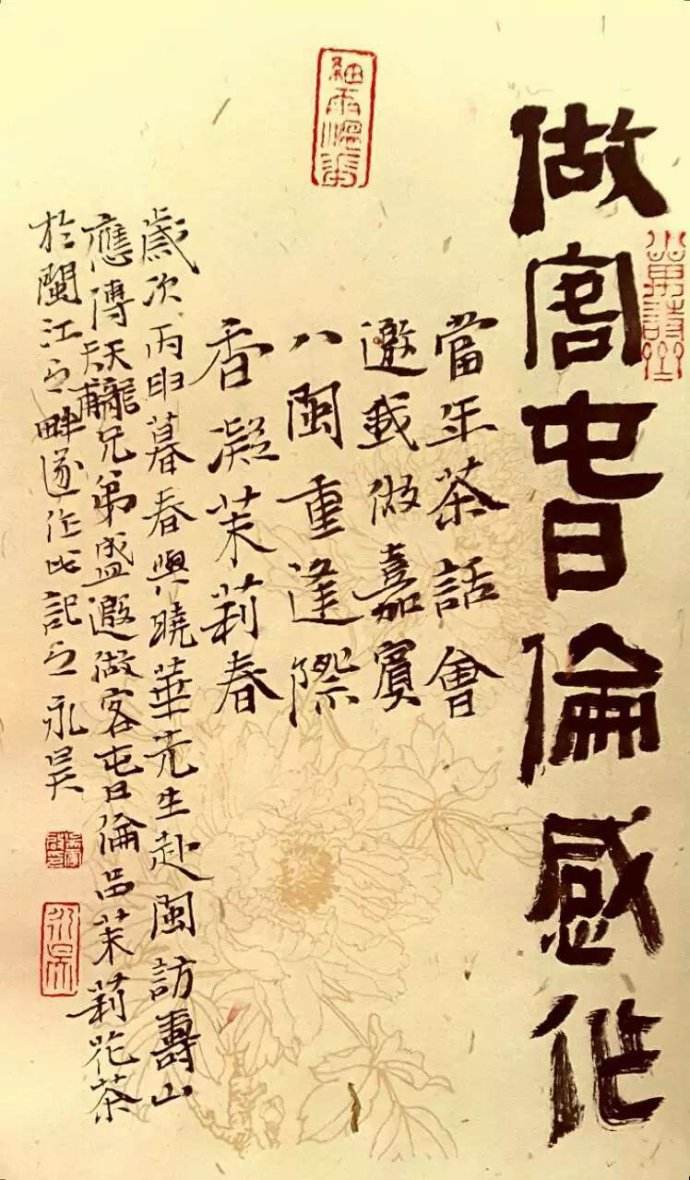 做客旾倫感作
當年茶話會
邀我做嘉賓
八閩重逢際
香凝茉莉春
歲次丙申暮春與曉華先生赴閩訪壽山
應傅天龍天甫兄弟盛邀做客旾倫品茉莉花茶
於閩江之畔遂作此記之永